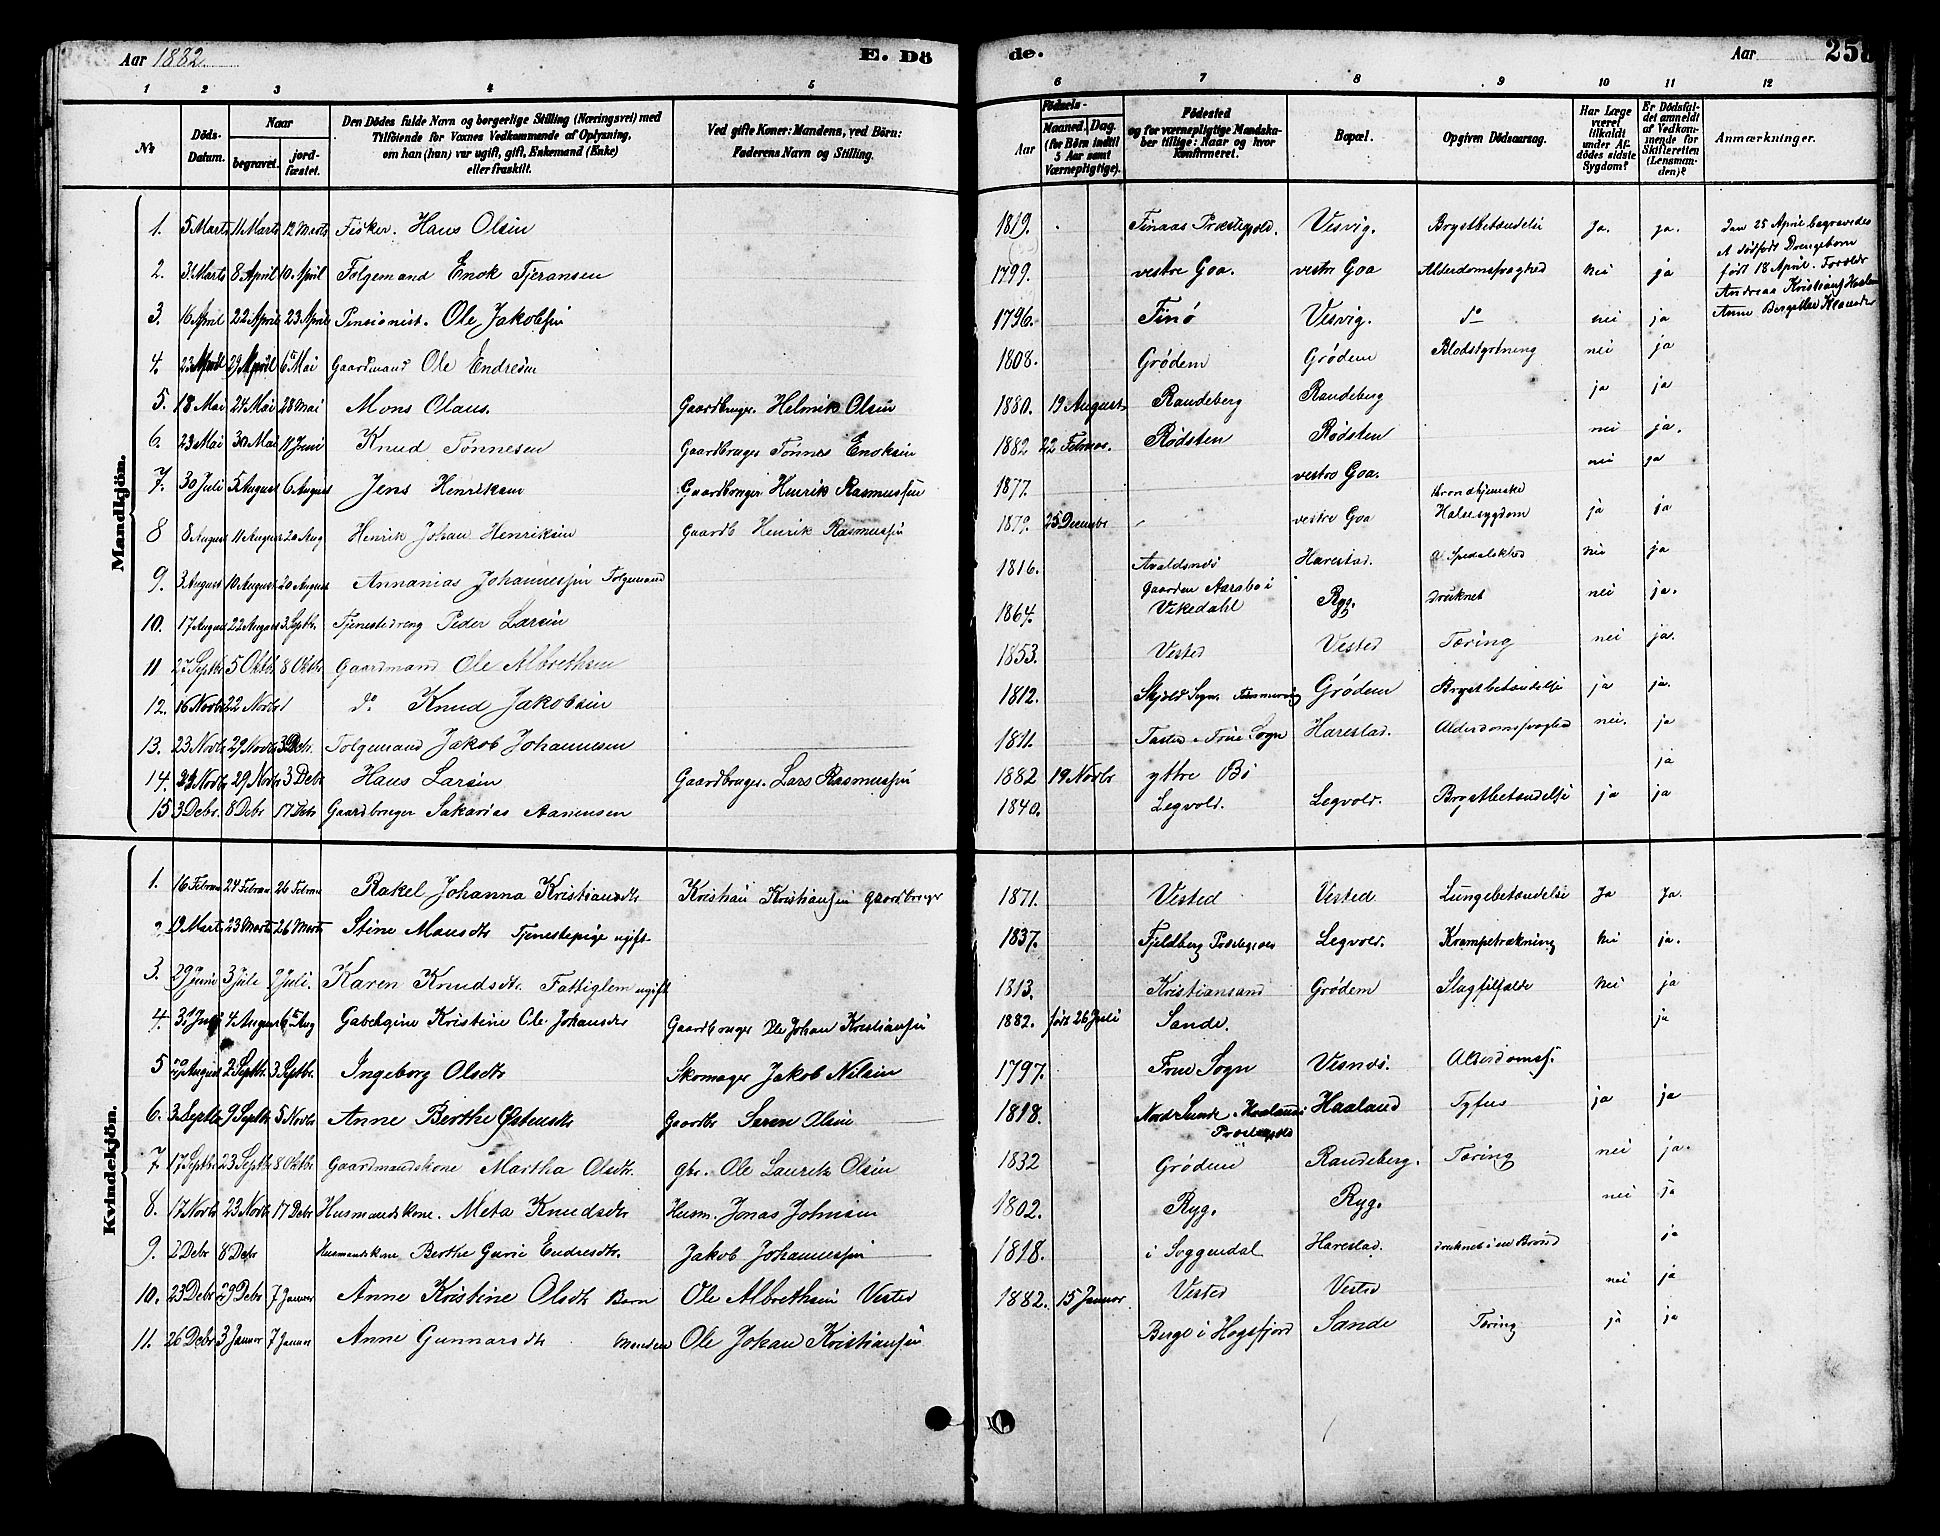 Aar 1882. E. Dö de. Aar 258
1 2 3 4 5 6 7 8 9 10 11 12
No
Döds-Datum.
Naar begravet. jordfæstet.
Den Dödes fulde Navn og borgerlige Stilling (Næringsvei) med
Tilföiende for Voxnes Vedkommende af Oplysning,
om han (hun) var ugift, gift, Enkemand (Enke)
eller fraskilt.
Ved gifte Koner: Mandens, ved Börn:
Faderens Navn og Stilling.
Födsels-
Aar Maaned. Dag.
(for Börn indtil
5 Aar samt
Værnepligtige).
Födested
og for værnepligtige Mandskaber tillige: Naar og hvor
konfirmeret.
Bopæl.
Opgiven Dödsaarsag.
Har Læge
været
tilkaldt
under Afdödes sidste
Sygdom?
Er Dödsfaldet anmeldt
af Vedkommende for
Skifteretten
(Lensmanden)?
Anmærkninger.
Mandkjön.
1. 5 Marts 11 Marts 12 Marts Fisker. Hans Olsen 1819. Finaas Præstegjeld. Vesvig. Brystbetændelse Ja. ja.
2. 31 Marts 8 April 10 April Folgemand Enok Tjeransen 1799. vestre Goa. vestre Goa Alderdomssvaghed nei ja
3. 16 April 22 April 23 April Pensionist. Ole Jakobsen 1796. Finø Vesvig. do nei ja
4. 23 April 29 April 6 Mai Gaardmand Ole Endresen 1808. Grødem Grødem Blodstyrtning nei ja
5. 18 Mai 24 Mai 28 Mai Mons Olaus. Gaardbruger. Helmik Olsen 1880. 19 August Randeberg Randeberg ja ja
6. 23 Mai 30 Mai 11 Juni Knud Tønnesen Gaardbruger Tønnes Enoksen 1882 22 Februar. Rødsten Rødsten nei ja.
7. 30 Juli 5 August 6 August Jens Henriksen Gaardbruger Henrik Rasmussen 1877. vestre Goa. nei ja
8 8 August 11 August 20 Aug Henrik Johan Henriksen Gaardb Henrik Rasmussen 1879. 25 Decembr vestre Goa Halssygdom ja ja
9. 3 August 10 August 20 August Annanias Johannessen Folgemand 1816. Avaldsnes Harestad. Spedalskhed nei ja
10. 17 August 22 August 3 Septb. Tjenestedreng Peder Larsen 1864. Gaarden Aarabø i Vikedahl Ryg. druknet nei ja.
11 27 Septb 5 Oktb 8 Oktbr Gaardmand Ole Albrethsen 1853. Vested Vested Tæring nei ja.
12. 16 Novb 22 Novb do Knud Jakobsen 1812. Skjold Sogn. Grødem Brystbetændelse ja ja.
13. 23 Novb 29 Novb 3 Debr. Folgemand Jakob Johannesen 1811. Tasted Frue Sogn Harestad. Alderdomssvaghed nei. ja
14. 22 Novb 29 Novb 3 Debr Hans Larsen Gaardbruger. Lars Rasmussen 1882 19 Novbr yttre Bø ja
15 3 Debr. 8 Debr 17 Debr Gaardbruger Sakarias Aanensen 1840. Legvold. Legvold. Brystbetændelse ja ja
Den 25 April begravedes
et dødfødt Drengebarn
født 18 April. Forældr
Andreas Kristians
Anne Bergitte
Kvindekjön.
1. 16 Februar 24 Februar 26 Februar Rakel Johanna Kristiansdtr Kristian Kristiansen Gaardbruger 1871. Vested Vested Lungebetændelse Ja Ja.
2. 19 Marts 23 Marts 26 Marts Stine Monsdtr Tjenestepige ugift 1837. Fjeldberg Legvold. Krampetrækning nei ja.
3. 29 Juni 3 Juli 9 Juli. Karen Knudsdtr. Fattiglem ugift 1813. Kristiansund Grødem Slagtilfælde nei ja
4. 31 Juli 4 August 6 Aug Kristine Ole Johansdtr Gaardbruger Ole Johan Kristiansen 1882. født 26 Juli Sande. ja
5 29 August 2 Septb. 3 Septbr. Ingeborg Olsdtr Skomager Jakob Nilsen 1797. Frue Sogn Vesnes. Alderdomss.
6. 3 Septb 9 Septb 5 Novbr Anne Berthe Østensdtr Gaardbr Søren Olsen 1818. Haaland Tyfus ja ja
7 17 Septb 23 Septb 8 Oktbr Gaardmandskone Martha Olsdtr. gbr. Ole Laurits Olsen 1832 Grødem Randeberg. Tæring nei ja.
8. 17 Novb 23 Novb 17 Debr Husmandskone. Meta Knudsdtr Husm. Jonas Johnsen 1802. Ryg. Ryg. nei ja
9. 2 Debr 8 Debr Husmandskone Berthe Gurie Endresdtr. Jakob Johannessen 1818. i Soggendal Harestad. druknet i en Brønd ja
10. 23 Debr 29 Debr 7 Januar Anne Kristine Olsdtr Barn Ole Albrethsen Vested 1882. 15 Januar Vested Vested nei ja
11. 26 Debr 3 Januar 7 Januar Anne Gunnarsdtr Manden Ole Johan Kristiansen Berge i Høgsfjord Sande Tæring ja ja